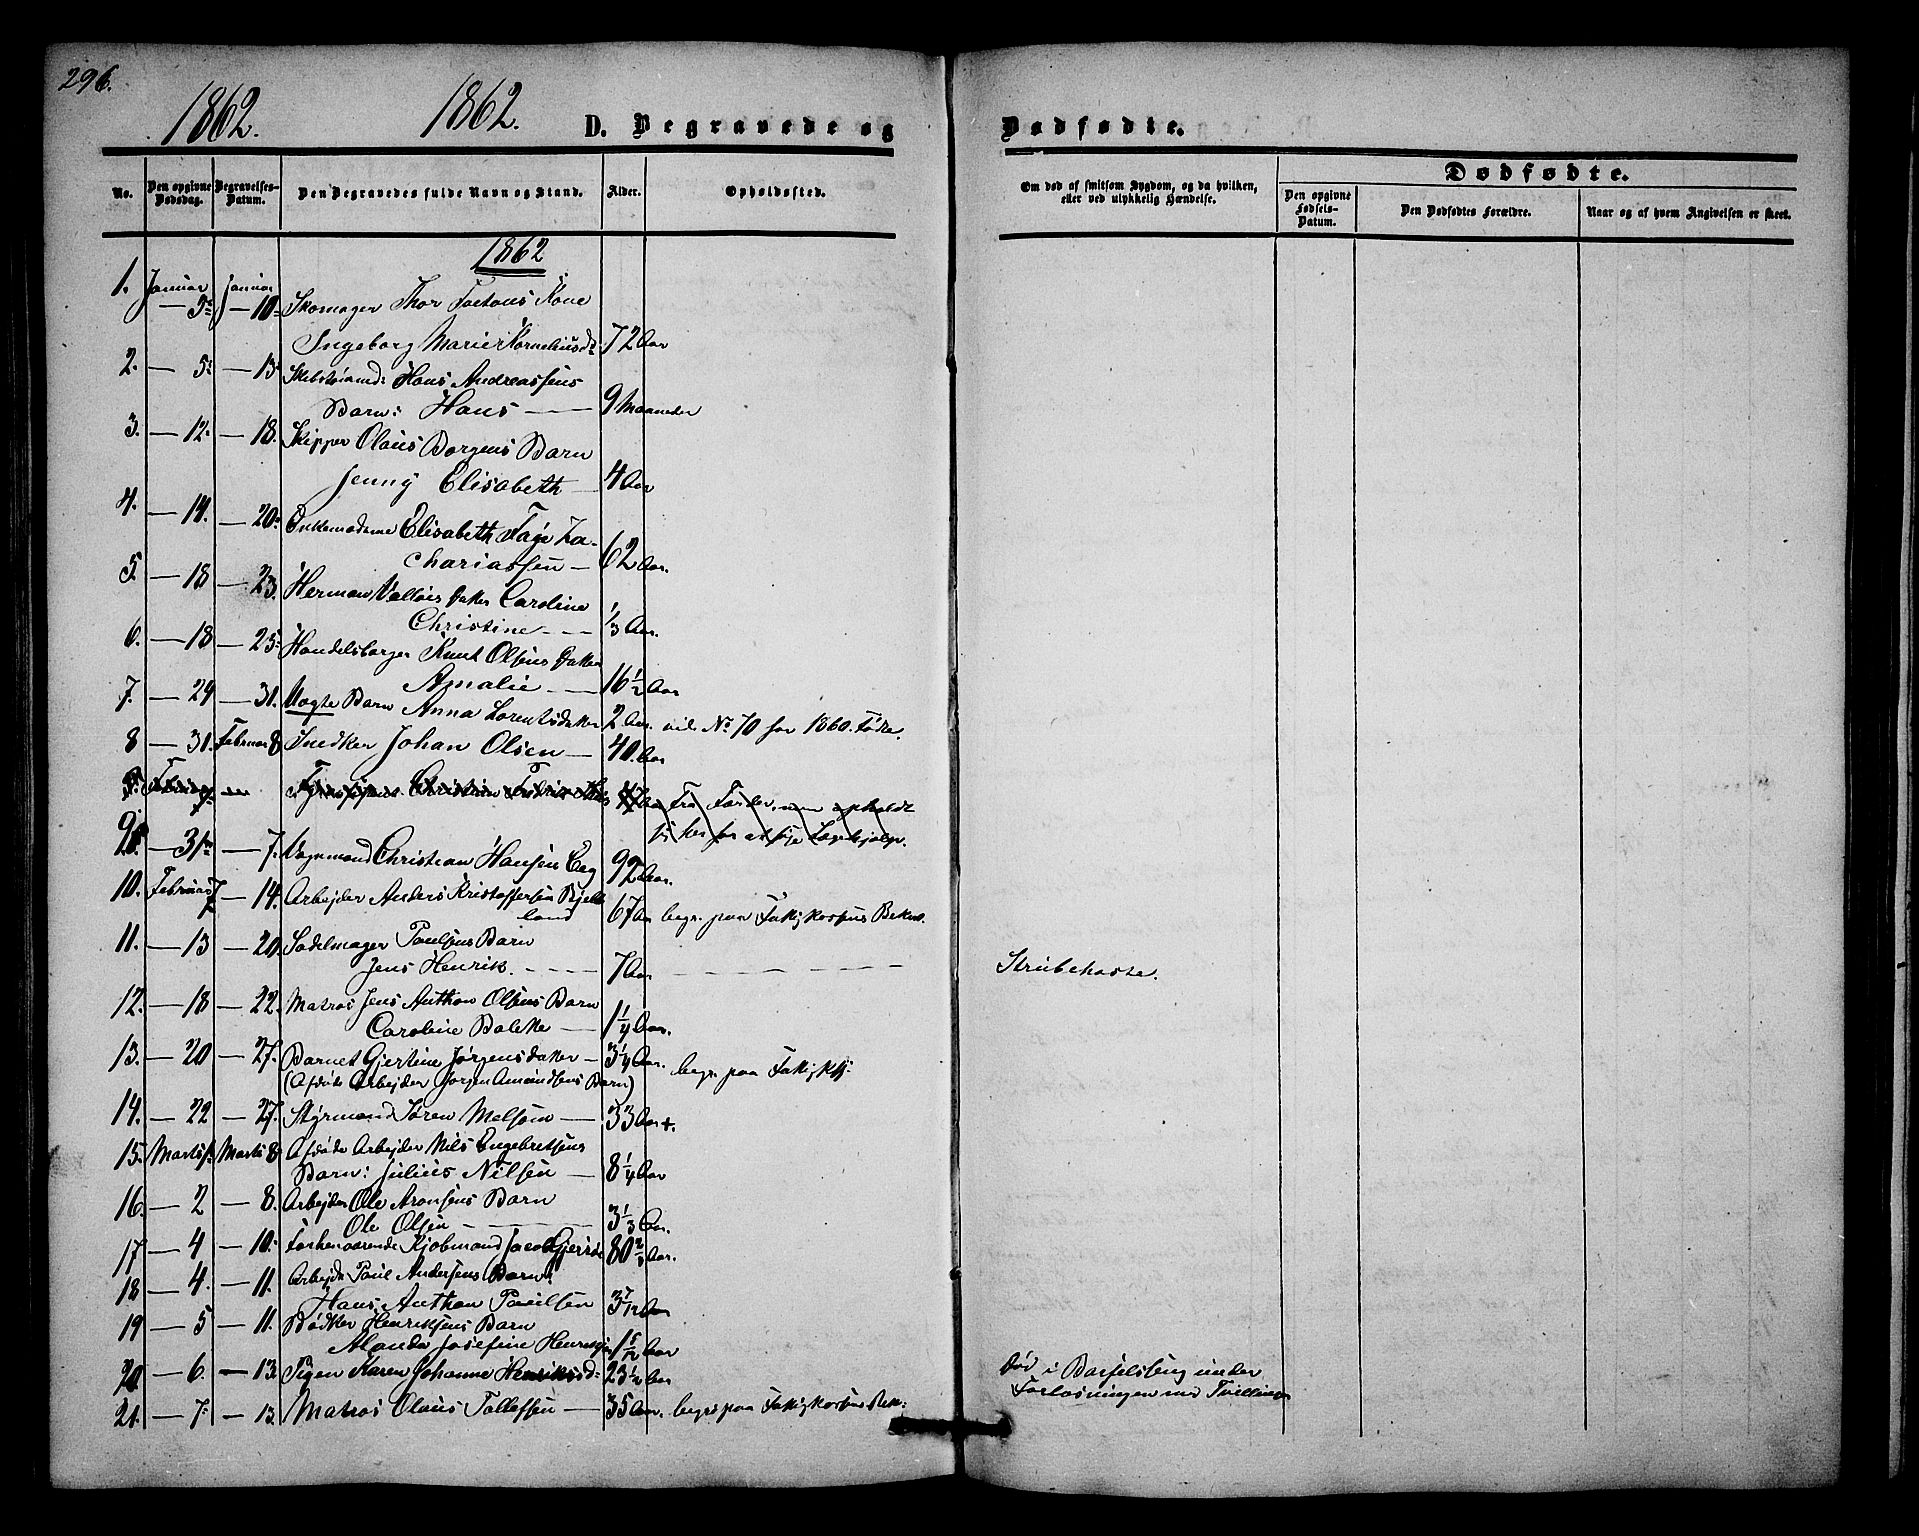 296.
1862. 1862. D. Begravede og Dødfødte.
No. Den opgivne Dødsdag. Begravelses-Datum. Den Begravedes fulde Navn og Stand. Alder. Opholdssted. Om død af smitsom Sygdom, og da hvilken, eller ved ulykkelig Hændelse. Dødfødte.
Den opgivne Fødsels-Datum. Den Dødfødtes Forældre. Naar og af hvem Angivelsen er skeet.
1862
1. Januar januar
— 5 — 10 Skomager Thor Kone
Ingeborg Marie Korneliusd: 72 Aar
2. — 5 — 13 Hans Andreassens
Barn: Hans — 9 Maaneder
3. — 12. — 18. Skipper Olaus Borgens Barn
Jenny Elisabeth — 4 Aar
4. — 14. — 20. Enkemadame Elisabeth Za-
chariassen — 62 Aar.
5. — 18 — 23. Herman Datter Caroline
Christine — 1/3 Aar.
6. — 18 — 25 Handelsborger Knut Olsens Datter
Amalie — 16 1/2 Aar
7. — 24 — 31. Uægte Barn Anna Lorentsdatter 2 Aar. vid. No 70 for 1860. Fødte.
8 — 31. Februar 8 Snedker Johan Olsen — 40. Aar
Christian Fredrik Fra
her for at Lægehjælp.
9. — 31 — 7. Christian Hansen Eeg 92 Aar.
10. Februar 7 — 14. Arbejder Anders Kristoffersen Bjelk
land 67 Aar begr. paa Fattigkassens Bekost.
11. — 13 — 20. Sadelmager Paulsens Barn
Jens Henrik. — 7 Aar — Strubehoste.
12. — 18 — 22. Matros Jens Anthon Olsens Barn
Caroline — 1 1/4 Aar.
13. — 20 — 27. Barnet Gjertine Jørgensdatter — 3 1/4 Aar. begr. paa
(Afdøde Arbejder Jørgen Amundsens Barn)
14. — 22 — 27. Styrmand Søren — 33 Aar.
15. Marts 1 Marts 8 Afdøde Arbejder Nils Engebretsens
Barn: Julius Nilsen — 8 1/4 Aar
16. — 2 — 8. Arbejder Ole Aronsens Barn
Ole Olsen — 3 1/3 Aar.
17 — 4 — 10. Forhenværende Kjøbmand Jacob 80 2/3 Aar.
18 — 4. — 11. Arbejder Paul Andersens Barn:
Hans Anthon Paulsen 3 7/12 Aar
19 — 5 — 11. Bødker Henriksens Barn
Josefine Henriksen 1 5/12 Aar
20 — 6. — 13. Pigen Karen Johanne Henriksd: 23 1/2 Aar Død i Barselseng under
Forløsningen med Tvillinger
21. — 7. — 13. Matros Olaus Tollefsen — 35 Aar. begr. paa Fattigkassens Bek: